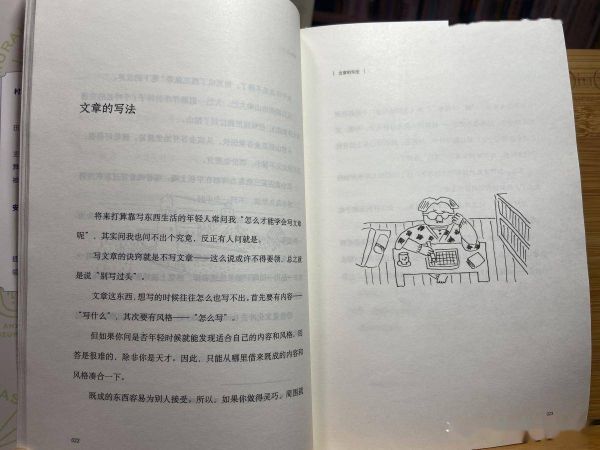 文章的写法
将来打算靠写东西生活的年轻人常问我“怎么才能学会写文章
呢”，其实问我也问不出个究竟，反正有人问就是。
写文章的诀窍就是不写文章——这么说或许不得要领，总之就
是说“别写过头”。
文章这东西，想写的时候往往怎么也写不出。首先要有内容——
“写什么”，其次要有风格——“怎么写”。
但如果你问是否年轻时候就能发现适合自己的内容和风格，回
答是很难的，除非你是天才。因此，只能从哪里借来既成的内容和
风格凑合一下。
既成的东西容易为别人接受。所以，如果你做得灵巧，周围就
022
[ 文章的写法 ]
023